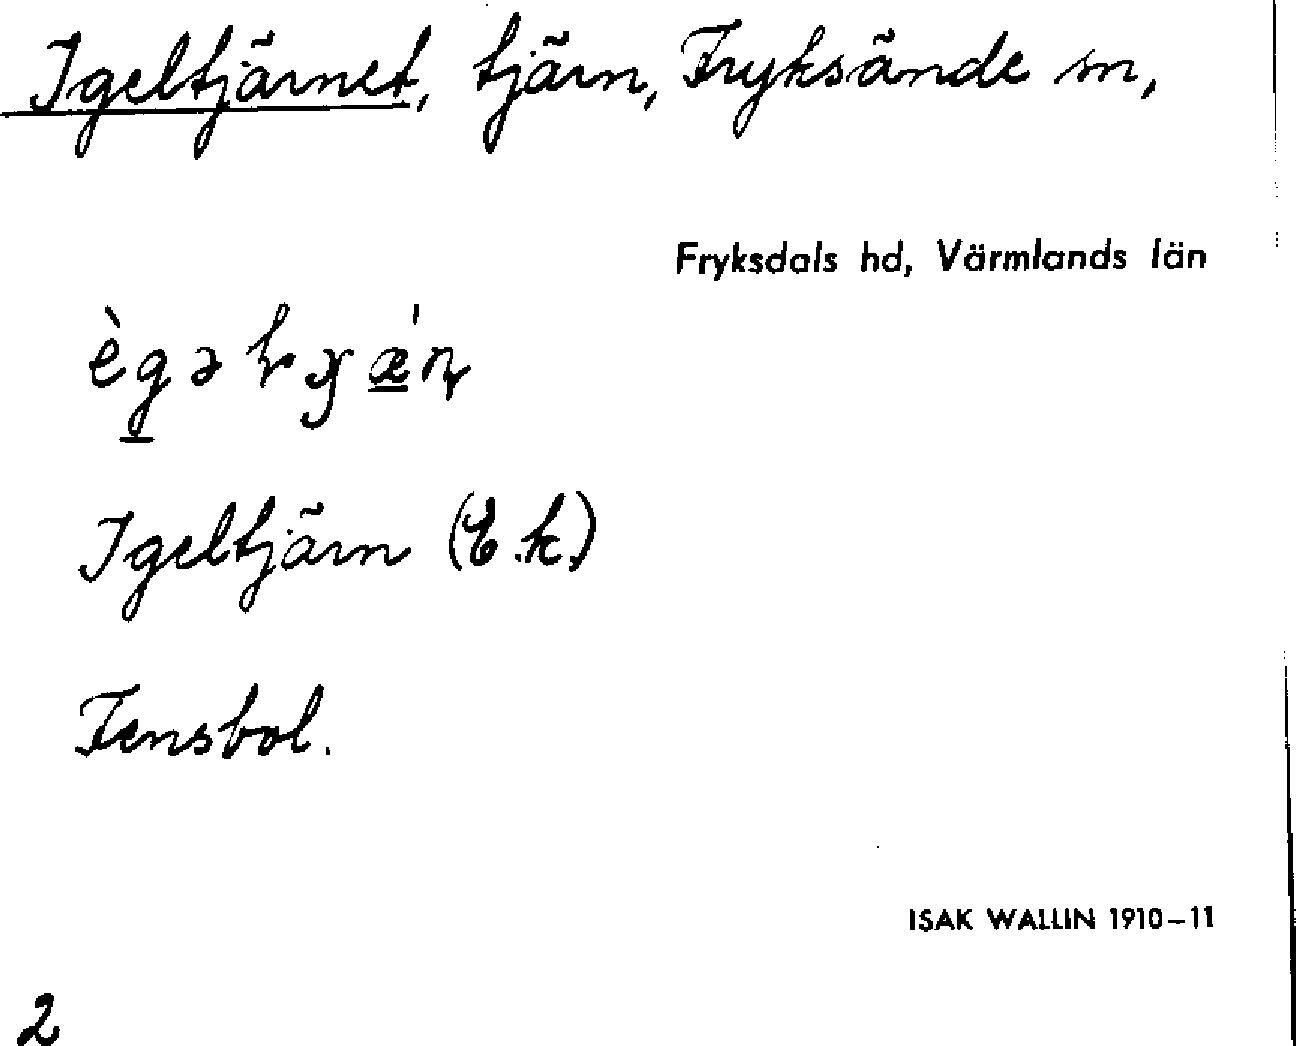 Igeltjärnet, tjärn, Fryksände sn,
Fryksdals hd, Värmlands län
Igeltjärn (E.k.)
Fensbol.
ISAK WALLIN 1910–11
2